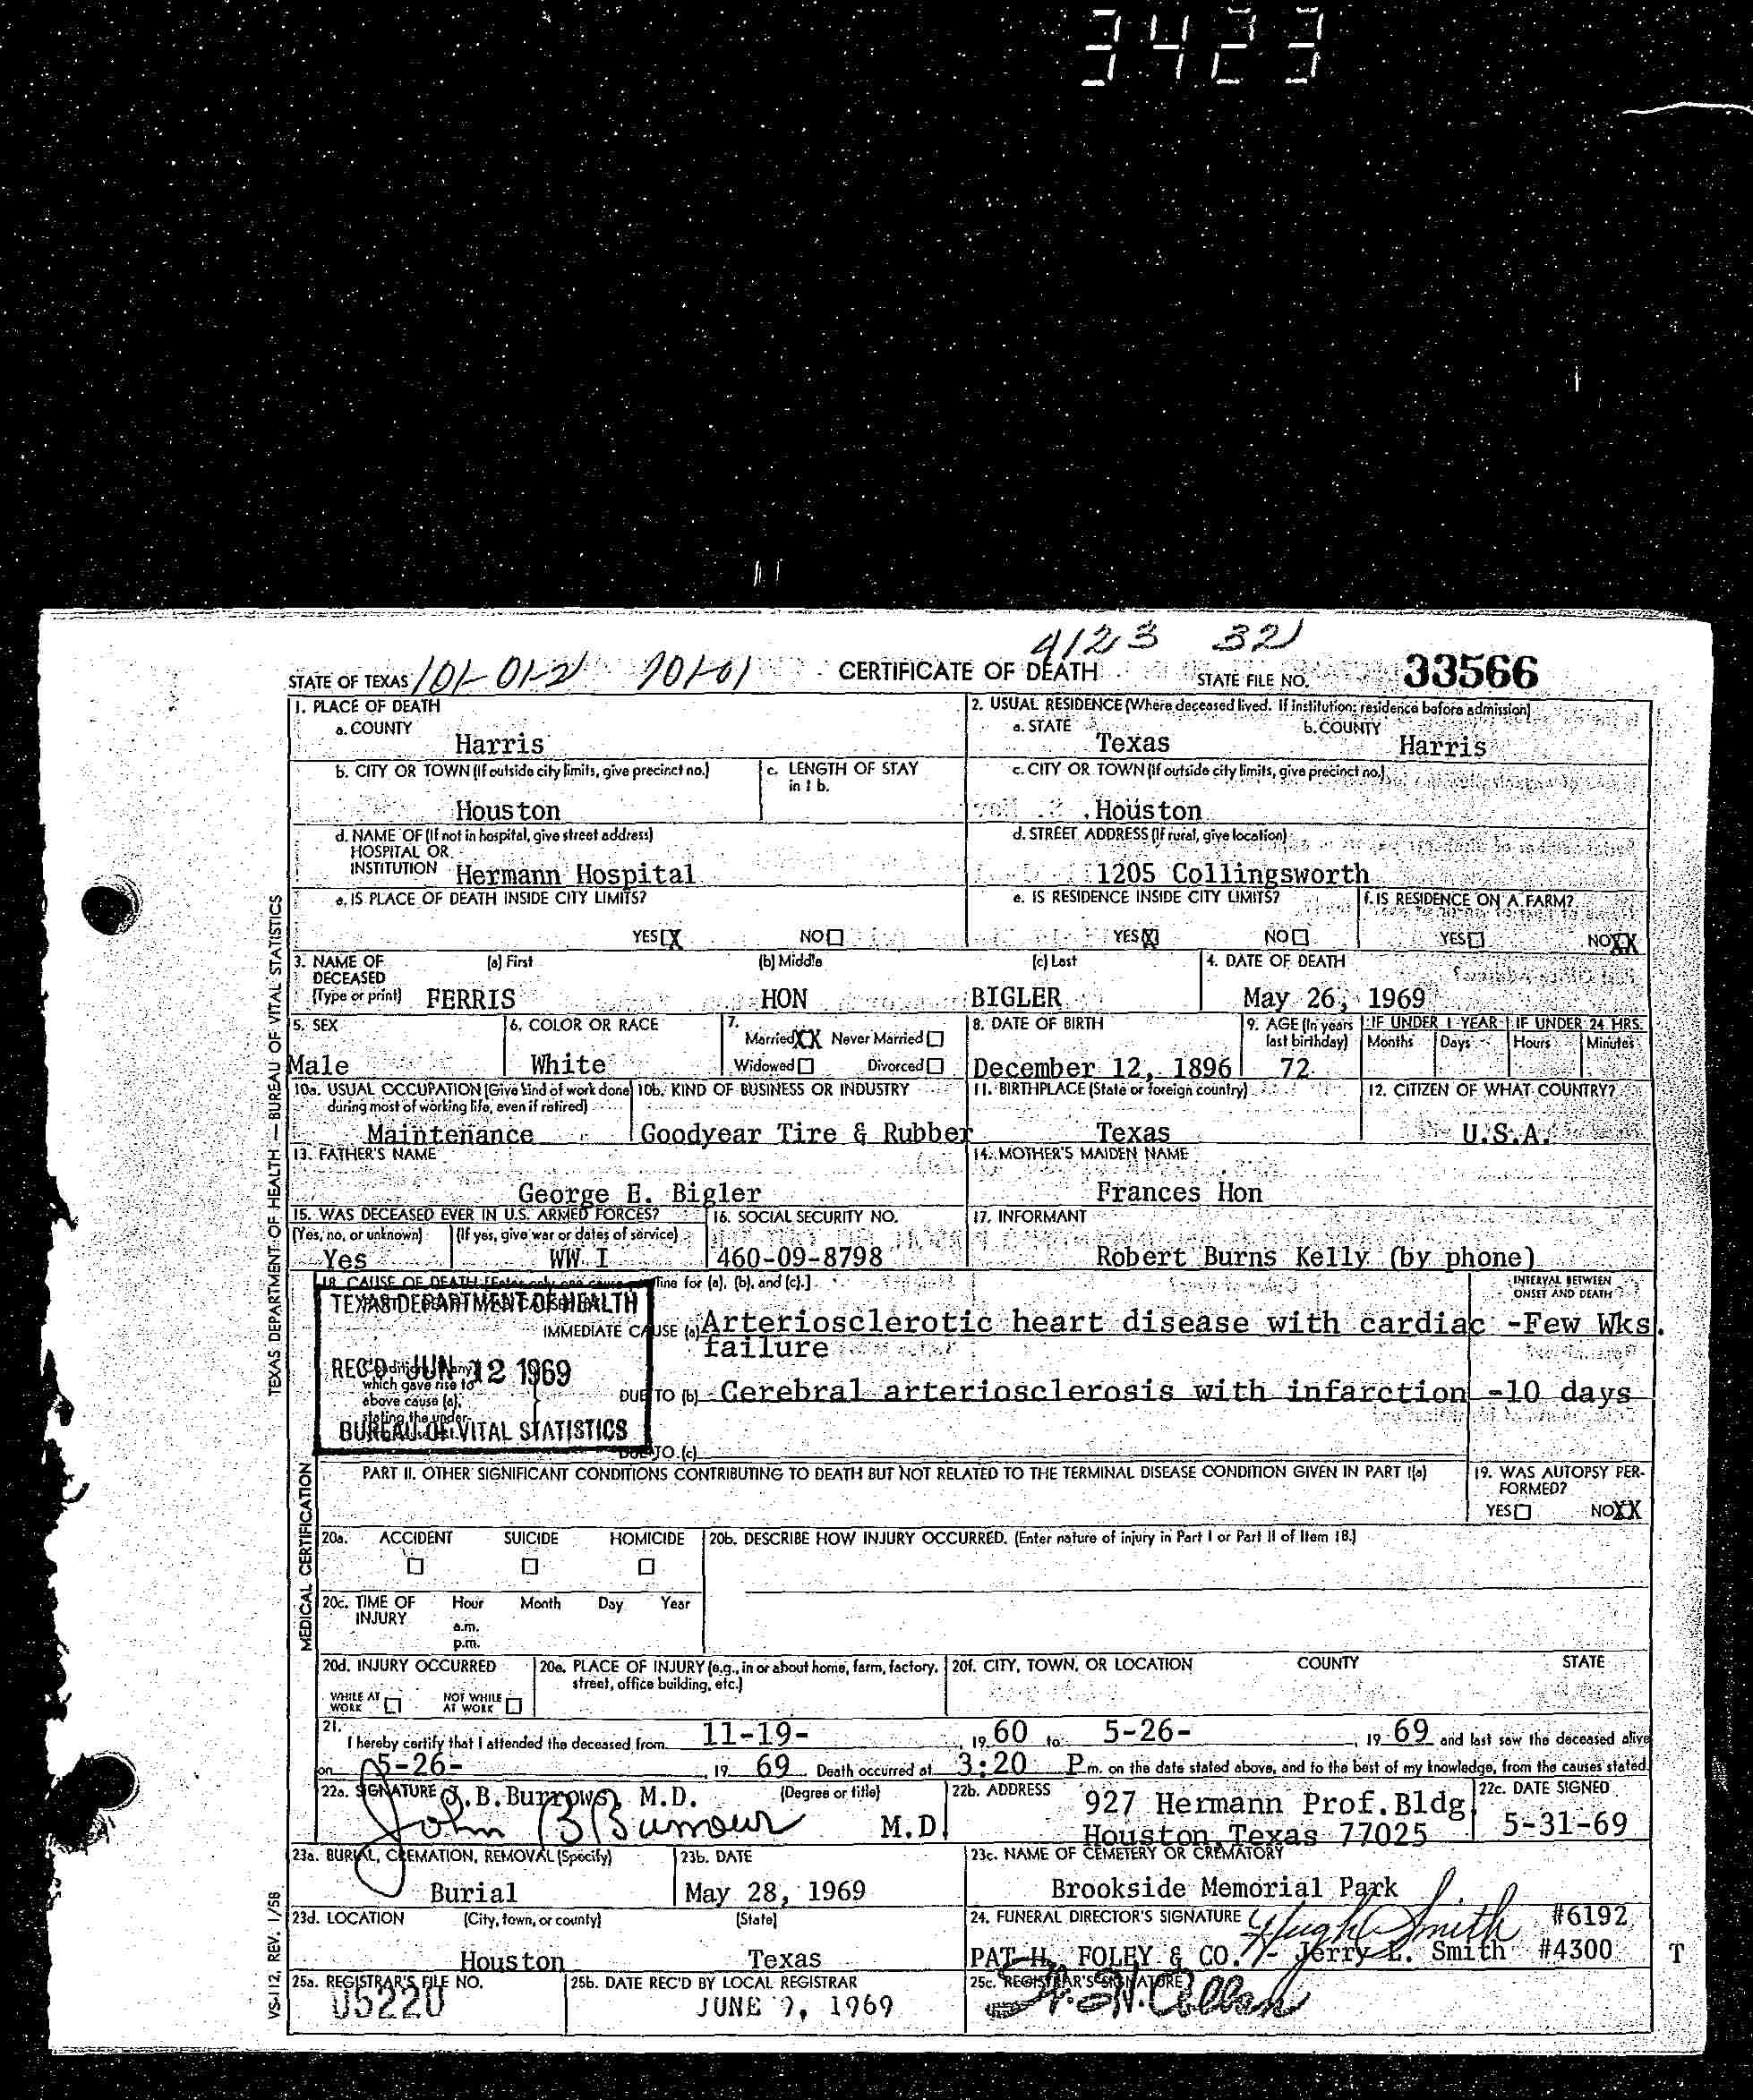 3423
4123 321
STATE OF TEXAS 101-01-2 101-01 CERTIFICATE OF DEATH STATE FILE NO. 33566
1. PLACE OF DEATH
a. COUNTY
Harris
2. USUAL RESIDENCE (Where deceased lived. If institution: residence before admission)
a. STATE b. COUNTY
Texas Harris
b. CITY OR TOWN (If outside city limits, give precinct no.) c. LENGTH OF STAY in 1 b.
Houston
c. CITY OR TOWN (If outside city limits, give precinct no.)
Houston
d. NAME OF (If not in hospital, give street address)
HOSPITAL OR
INSTITUTION Hermann Hospital
d. STREET ADDRESS (If rural, give location)
1205 Collingsworth
e. IS PLACE OF DEATH INSIDE CITY LIMITS?
YES X NO
e. IS RESIDENCE INSIDE CITY LIMITS?
YES X NO
f. IS RESIDENCE ON A FARM?
YES NO XX
3. NAME OF DECEASED (Type or print) (a) First (b) Middle (c) Last
FERRIS HON BIGLER
4. DATE OF DEATH
May 26, 1969
5. SEX
Male
6. COLOR OR RACE
White
7. Married XX Never Married
Widowed Divorced
8. DATE OF BIRTH
December 12, 1896
9. AGE (In years last birthday)
72
IF UNDER 1 YEAR Months Days
IF UNDER 24 HRS. Hours Minutes
10a. USUAL OCCUPATION (Give kind of work done during most of working life, even if retired)
Maintenance
10b. KIND OF BUSINESS OR INDUSTRY
Goodyear Tire & Rubber
11. BIRTHPLACE (State or foreign country)
Texas
12. CITIZEN OF WHAT COUNTRY?
U.S.A.
13. FATHER'S NAME
George E. Bigler
14. MOTHER'S MAIDEN NAME
Frances Hon
15. WAS DECEASED EVER IN U.S. ARMED FORCES?
(Yes, no, or unknown) (If yes, give war or dates of service)
Yes WW I
16. SOCIAL SECURITY NO.
460-09-8798
17. INFORMANT
Robert Burns Kelly (by phone)
18. CAUSE OF DEATH [Enter only one cause line for (a), (b), and (c).]
INTERVAL BETWEEN ONSET AND DEATH
TEXAS DEPARTMENT OF HEALTH
REC'D JUN 12 1969
BUREAU OF VITAL STATISTICS
IMMEDIATE CAUSE (a) Arteriosclerotic heart disease with cardiac -Few Wks.
failure
which gave rise to
above cause (a),
stating the under-
DUE TO (b) Cerebral arteriosclerosis with infarction -10 days
DUE TO (c)
PART II. OTHER SIGNIFICANT CONDITIONS CONTRIBUTING TO DEATH BUT NOT RELATED TO THE TERMINAL DISEASE CONDITION GIVEN IN PART I(a)
19. WAS AUTOPSY PERFORMED?
YES NO XX
20a. ACCIDENT SUICIDE HOMICIDE
20b. DESCRIBE HOW INJURY OCCURRED. (Enter nature of injury in Part I or Part II of Item 18.)
20c. TIME OF INJURY Hour Month Day Year
a.m.
p.m.
20d. INJURY OCCURRED
WHILE AT WORK NOT WHILE AT WORK
20e. PLACE OF INJURY (e.g., in or about home, farm, factory, street, office building, etc.)
20f. CITY, TOWN, OR LOCATION COUNTY STATE
21. I hereby certify that I attended the deceased from 11-19-, 19 60 to 5-26-, 19 69 and last saw the deceased alive
on 5-26-, 19 69 Death occurred at 3:20 P m. on the date stated above, and to the best of my knowledge, from the causes stated.
22a. SIGNATURE J.B. Burrows, M.D. (Degree or title)
John B Burrows M.D.
22b. ADDRESS
927 Hermann Prof. Bldg
Houston, Texas 77025
22c. DATE SIGNED
5-31-69
23a. BURIAL, CREMATION, REMOVAL (Specify)
Burial
23b. DATE
May 28, 1969
23c. NAME OF CEMETERY OR CREMATORY
Brookside Memorial Park
23d. LOCATION (City, town, or county) (State)
Houston Texas
24. FUNERAL DIRECTOR'S SIGNATURE Hugh Smith #6192
PAT H. FOLEY & CO. - Jerry L. Smith #4300
T
25a. REGISTRAR'S FILE NO.
05220
25b. DATE REC'D BY LOCAL REGISTRAR
JUNE 9, 1969
25c. REGISTRAR'S SIGNATURE
TEXAS DEPARTMENT OF HEALTH — BUREAU OF VITAL STATISTICS
MEDICAL CERTIFICATION
VS-112, REV. 1/58